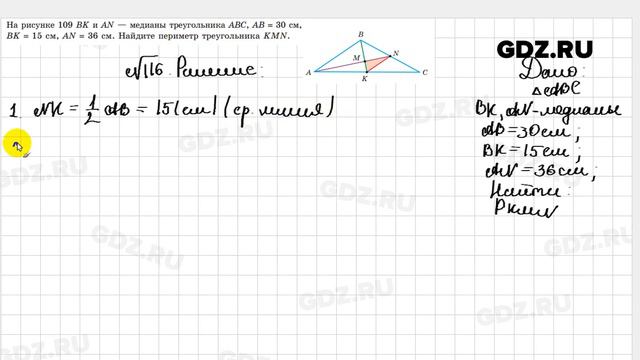 На рисунке 109 BK и AN — медианы треугольника ABC, AB = 30 см,
BK = 15 см, AN = 36 см. Найдите периметр треугольника KMN.
B
M
N
A
K
C
GDZ.RU
№116. Решение:
Дано:
△ABC
1. NK = 1/2 AB = 15(см) (ср. линия)
BK, AN-медианы
AB=30см;
BK=15см;
AN=36см;
Найти:
PKMN
GDZ.RU
GDZ.RU
GDZ.RU
GDZ.RU
GDZ.RU
GDZ.RU
GDZ.RU
GDZ.RU